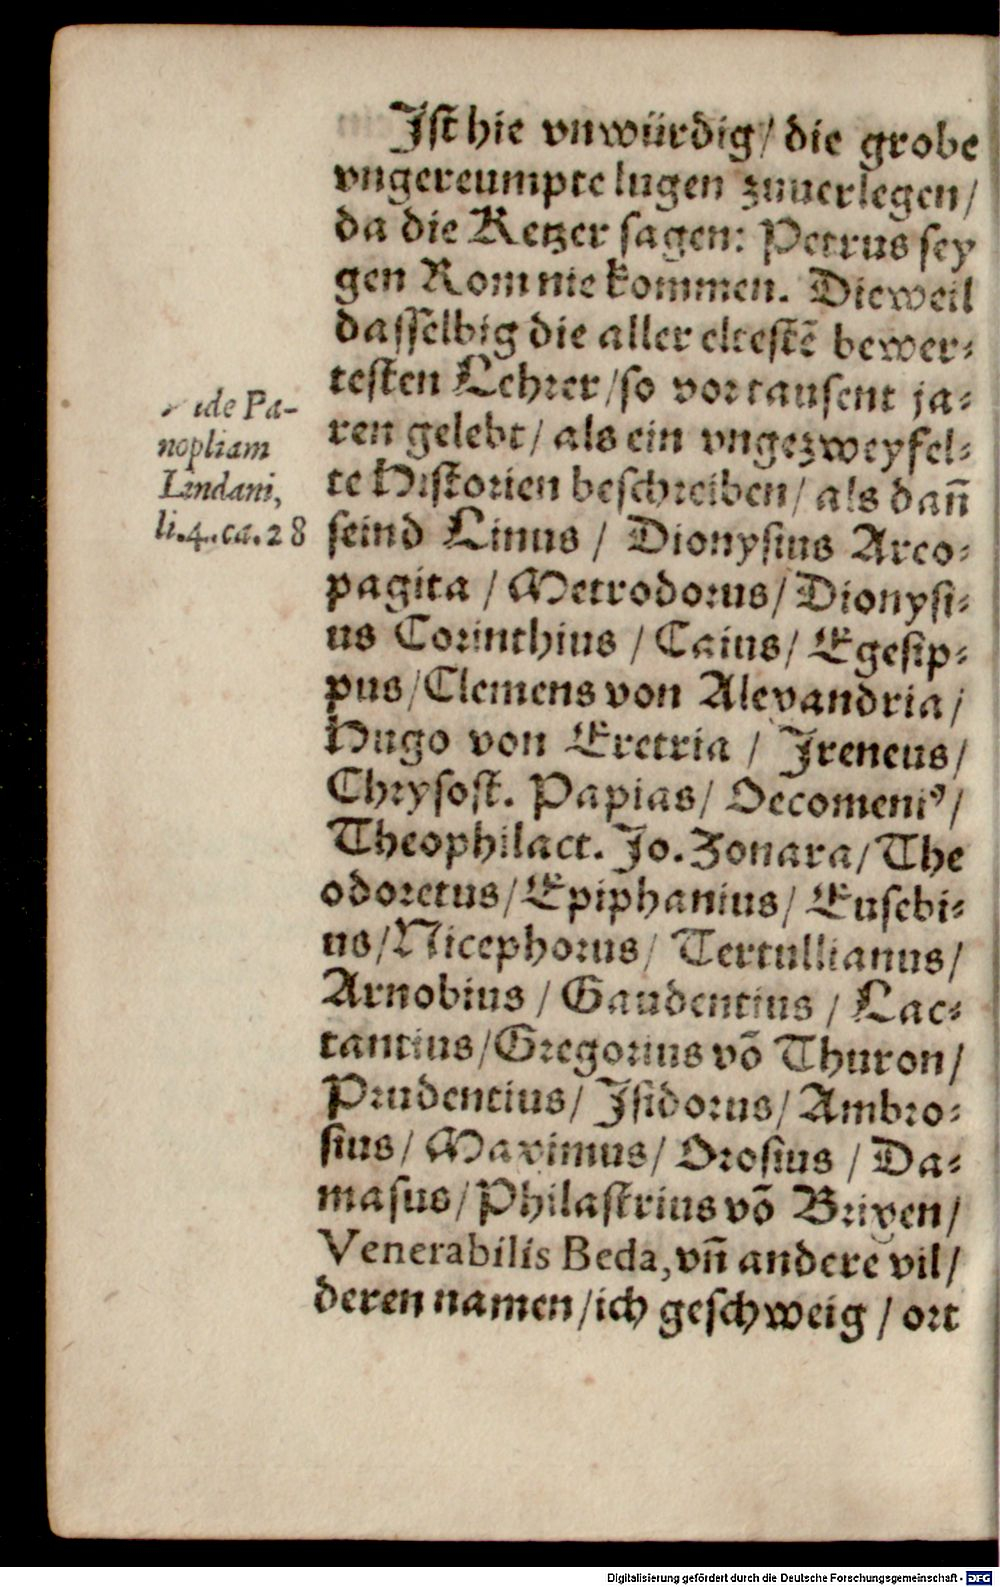 Iſt hie vnwürdig / die grobe
vngereumpte lugen zuuerlegen /
da die Ketzer ſagen: Petrus ſey
gen Rom nie kommen. Dieweil
daſſelbig die aller elteſtẽ bewer⸗
teſten Lehrer / ſo vor tauſent ja⸗
ren gelebt / als ein vngezweyfel⸗
te Hiſtorien beſchreiben / als dañ
ſeind Linus / Dionyſius Areo⸗
pagita / Metrodorus / Dionyſi⸗
us Corinthius / Caius / Egeſip⸗
pus / Clemens von Alexandria /
Hugo von Eretria / Ireneus /
Chryſoſt. Papias / Oecomeniꝰ /
Theophilact. Jo. Zonara / The
odoretus / Epiphanius / Euſebi⸗
us / Nicephorus / Tertullianus /
Arnobius / Gaudentius / Lac⸗
tantius / Gregorius võ Thuron /
Prudentius / Iſidorus / Ambro⸗
ſius / Maximus / Oroſius / Da⸗
maſus / Philaſtrius võ Brixen /
Venerabilis Beda, vñ andere vil /
deren namen / ich geſchweig / ort
Vide Pa-
nopliam
Lindani,
li.4.ca.28
Digitalisierung gefördert durch die Deutsche Forschungsgemeinschaft - DFG